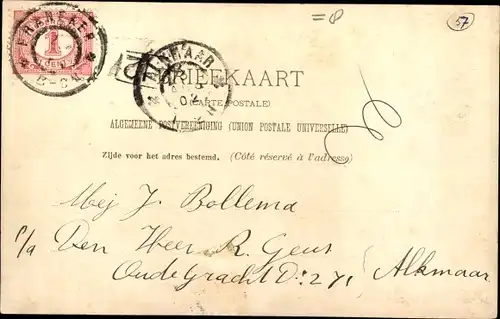 FRANEKER
1
CENT
=
57
ALKMAAR
02
BRIEFKAART
(CARTE POSTALE)
ALGEMEENE POSTVEREENIGING (UNION POSTALE UNIVERSELLE)
Zijde voor het adres bestemd. (Côté réservé à l'adresse)
Mej J. Bollema
p/a Den Heer R. Geus
Oudegracht D: 271 Alkmaar